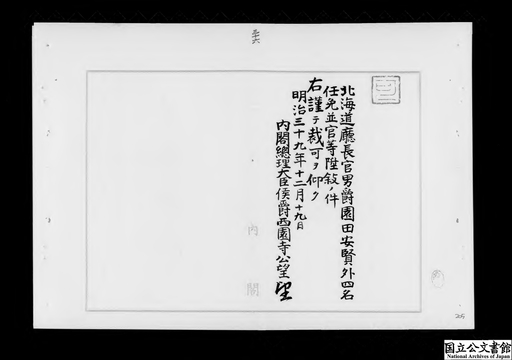 北海道廳長官男爵園田安賢外四名
任免並官等陞敍ノ件
右謹テ裁可ヲ仰ク
明治三十九年十二月十九日
内閣總理大臣侯爵西園寺公望
内閣
国立公文書館
National Archives of Japan